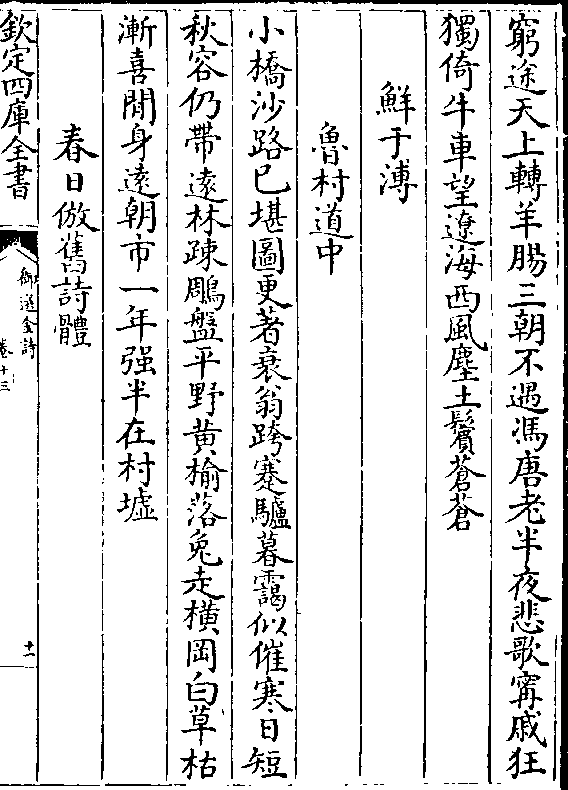 窮途天上轉羊腸三朝不遇馮唐老半夜悲歌寗戚狂
獨倚牛車望遼海西風塵土鬢蒼蒼
鮮于溥
魯村道中
小橋沙路已堪圖更著衰翁跨蹇驢暮靄似催寒日短
秋容仍帶遠林疎鵰盤平野黄榆落兔走橫岡白草枯
漸喜閒身遠朝市一年强半在村墟
春日倣舊詩體
欽定四庫全書
御選金詩
卷十三
十一